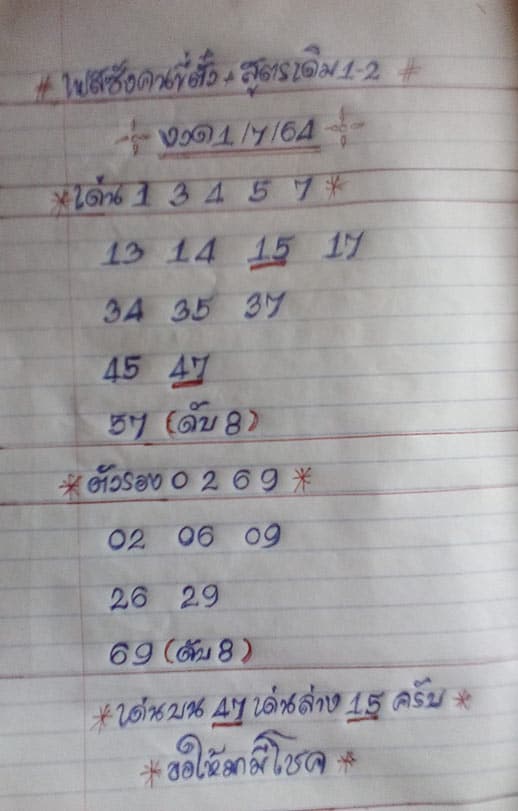 # เพสซังคนขี่ตั๋ว + สูตรเดิม 1-2 #
งวด 1/7/64
* เด่น 1 3 4 5 7 *
13 14 15 17
34 35 37
45 47
57 (ดับ 8)
* ตัวรอง 0 2 6 9 *
02 06 09
26 29
69 (ดับ 8)
* เด่นบน 47 เด่นล่าง 15 ครับ *
* ขอให้มามีโชค *